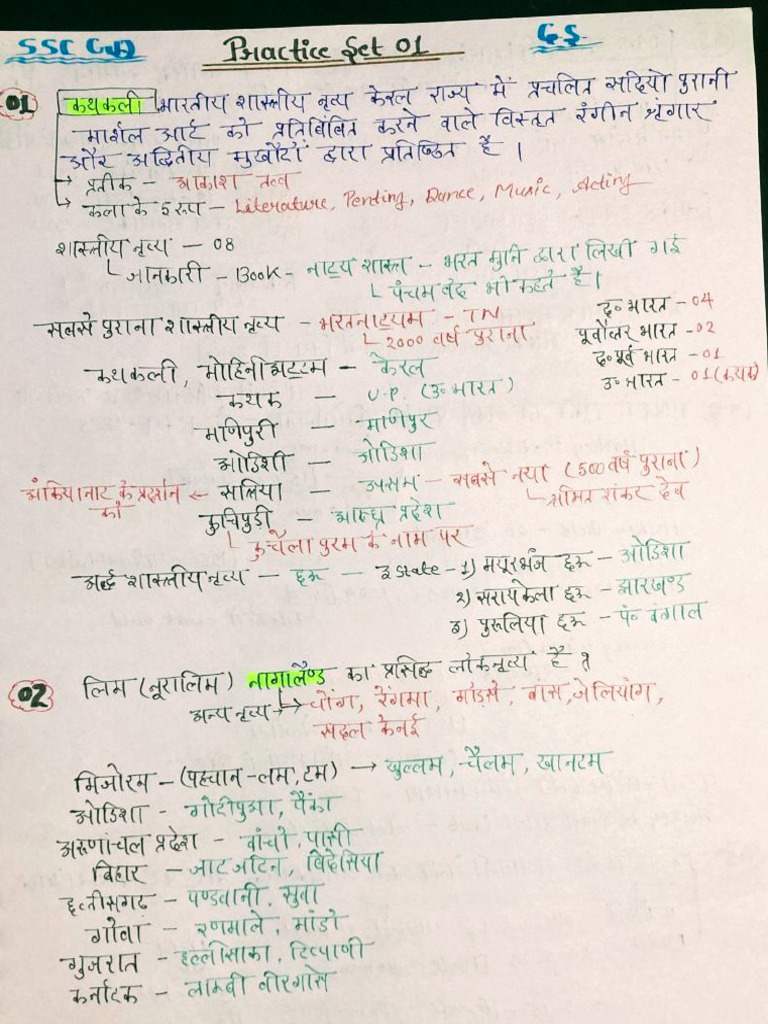 SSC GD Practice Set 01 G.S.
01 कथकली भारतीय शास्त्रीय नृत्य केरल राज्य में प्रचलित सदियों पुरानी
मार्शल आर्ट को प्रतिबिंबित करने वाले विस्तृत रंगीन श्रृंगार
और अद्वितीय मुखौटों द्वारा प्रतिष्ठित है ।
→ प्रतीक - आकाश तत्व
→ कला के 5 रूप - Literature, Penting, Dance, Music, Acting
शास्त्रीय नृत्य - 08
जानकारी - Book - नाट्य शास्त्र - भरत मुनि द्वारा लिखी गई
पंचम वेद भी कहते हैं।
सबसे पुराना शास्त्रीय नृत्य - भरतनाट्यम - TN
2000 वर्ष पुराना
द० भारत - 04
पूर्वोत्तर भारत - 02
द० पूर्व भारत - 01
उ० भारत - 01 (कथक)
कथकली, मोहिनीअट्टम - केरल
कथक - U.P. (उ० भारत)
मणिपुरी - मणिपुर
ओडिशी - ओडिशा
अंकियानाट के प्रदर्शन को ← सत्रिया - असम - सबसे नया (500 वर्ष पुराना)
श्रीमंत शंकर देव
कुचिपुड़ी - आन्ध्र प्रदेश
कुचेला पुरम के नाम पर
अर्द्ध शास्त्रीय नृत्य - छऊ - 3 State - 1) मयूरभंज छऊ - ओडिशा
2) सरायकेला छऊ - झारखण्ड
3) पुरूलिया छऊ - पं० बंगाल
02 लिम (नूरालिम) नागालैण्ड का प्रसिद्ध लोकनृत्य है ?
अन्य नृत्य → चोंग, रेंगमा, मोडसे, बांस, जेलियांग,
सदल केकई
मिजोरम - (पहचान - लम, टम) → खुल्लम, चैलम, खानटम
ओडिशा - गोटीपुआ, पैंका
अरूणांचल प्रदेश - वांचो, पासी
बिहार - जाट जटिन, बिदेसिया
छत्तीसगढ़ - पण्डवानी, सुवा
गोवा - रणमाले, मांडो
गुजरात - हल्लीसाका, टिप्पाणी
कर्नाटक - लाम्बी वीरगासे